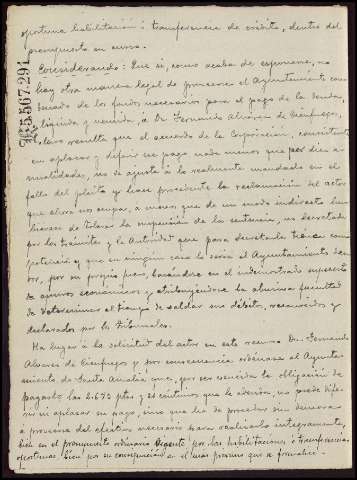 oportuna habilitación o transferencia de crédito, dentro del
presupuesto en curso.
Considerando: Que si, como acaba de exponerse, no
hay otra manera legal de proveerse el Ayuntamiento
de los fondos necesarios para el pago de la deuda,
líquida y vencida, a Dn. Fernando Alvarez de Cienfuegos,
claro resulta que el acuerdo de la Corporación, consistente
en aplazar y diferir un pago nada menos que por diez a-
nualidades, no se ajusta a lo realmente mandado en el
fallo del pleito y hace procedente la reclamación del actor
que ahora nos ocupa, a menos que de un modo indirecto hu-
biese de tolerar la suspensión de la sentencia, no decretada
por los trámites y la Autoridad que para decretarla tiene com-
petencia y que en ningún caso lo sería el Ayuntamiento deu-
dor, por sí propio, basándose en el indemostrado supuesto
de apuros económicos y atribuyéndose la absurda facultad
de determinar el tiempo de saldar sus débitos, reconocidos y
declarados por los Tribunales.
Ha lugar a la solicitud del actor en este recurso Dn. Fernando
Alvarez de Cienfuegos y por consecuencia ordénase al Ayunta-
miento de Santa Amalia que, por ser vencida la obligación de
pagarle las 6.673 ptas y céntimos que le adeudan, no puede dife-
rir ni aplazar su pago, sino que ha de proceder sin demora
a proveerse del efectivo necesario para realizarlo íntegramente,
bien en el presupuesto ordinario vigente, por las habilitaciones o transferencias
oportunas, bien por su consignación en el más próximo que se formalice.
B5.567.291